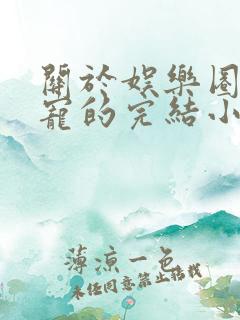 關於娛樂圈
寵的完結小
薄涼一色
未經同意禁止转载